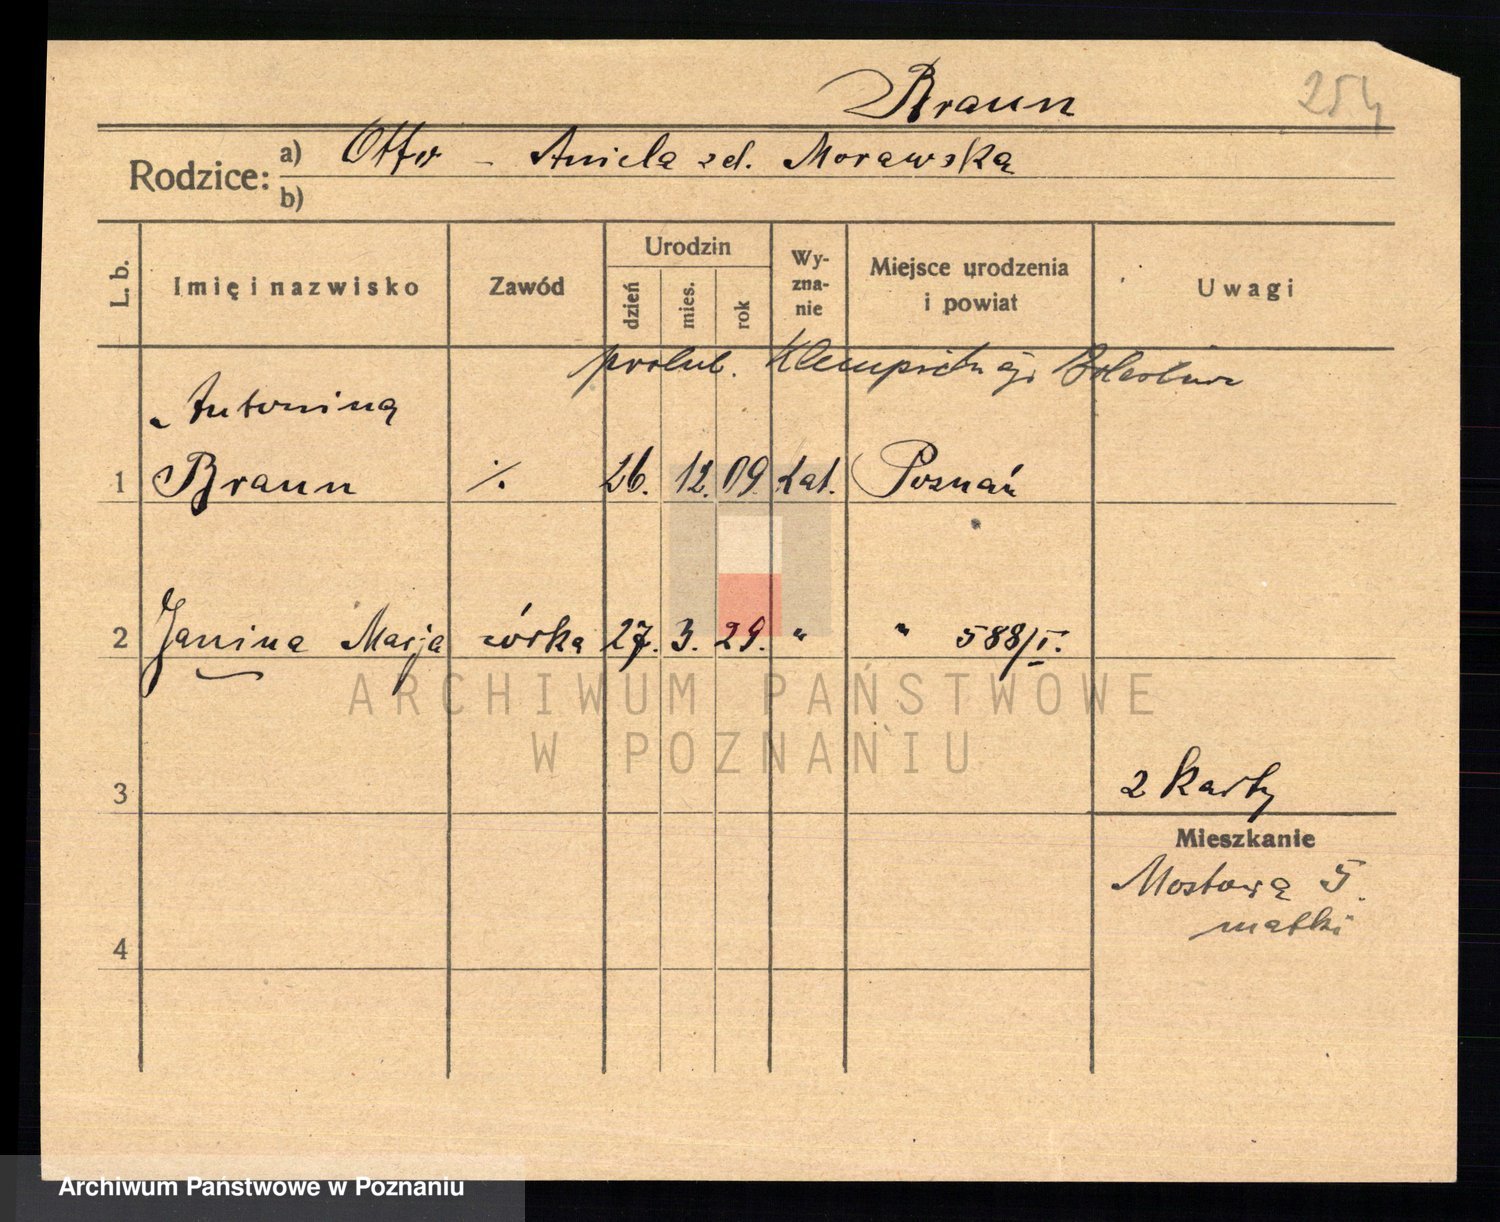 Braun
254
Rodzice: a) Otto - Aniela zd. Morawska
b)
L. b. Imię i nazwisko Zawód Urodzin dzień mies. rok Wyznanie Miejsce urodzenia i powiat Uwagi
Antonina
1 Braun ·/· 26. 12. 09. kat. Poznań
2 Janina Marja córka 27. 3. 29. " " 588/I.
ARCHIWUM PAŃSTWOWE
W POZNANIU
3 2 karty
Mieszkanie
Mostowa 5.
matki
4
Archiwum Państwowe w Poznaniu